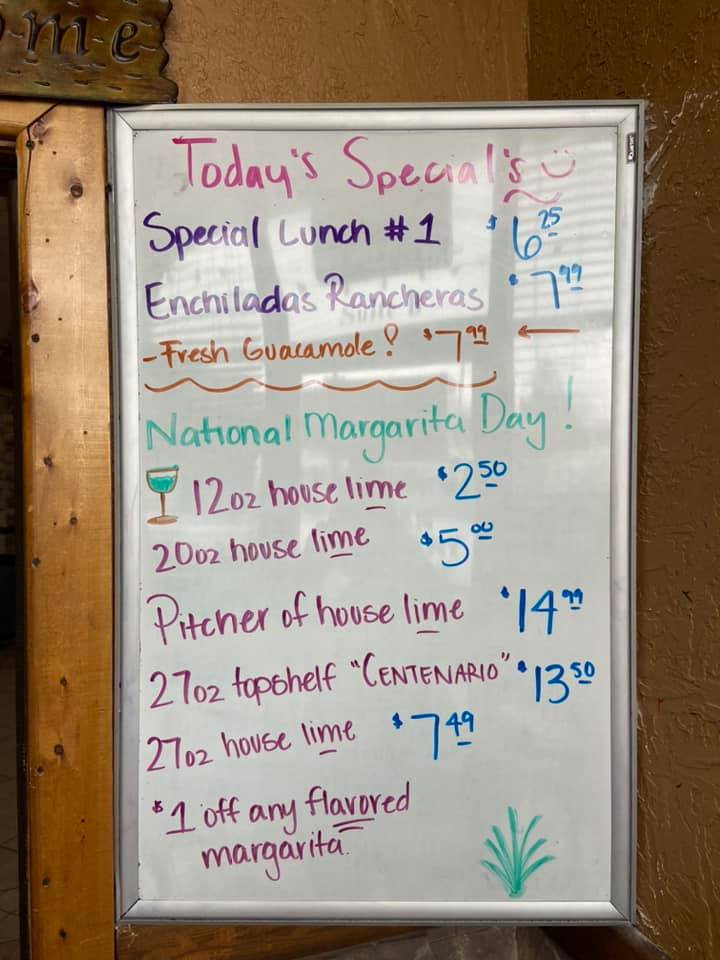 ome
Today's Special's
Special Lunch #1 $6.25
Enchiladas Rancheras $7.99
-Fresh Guacamole! $7.99
National Margarita Day!
12oz house lime $2.50
20oz house lime $5.00
Pitcher of house lime $14.99
27oz topshelf "CENTENARIO" $13.50
27oz house lime $7.49
$1 off any flavored
margarita.